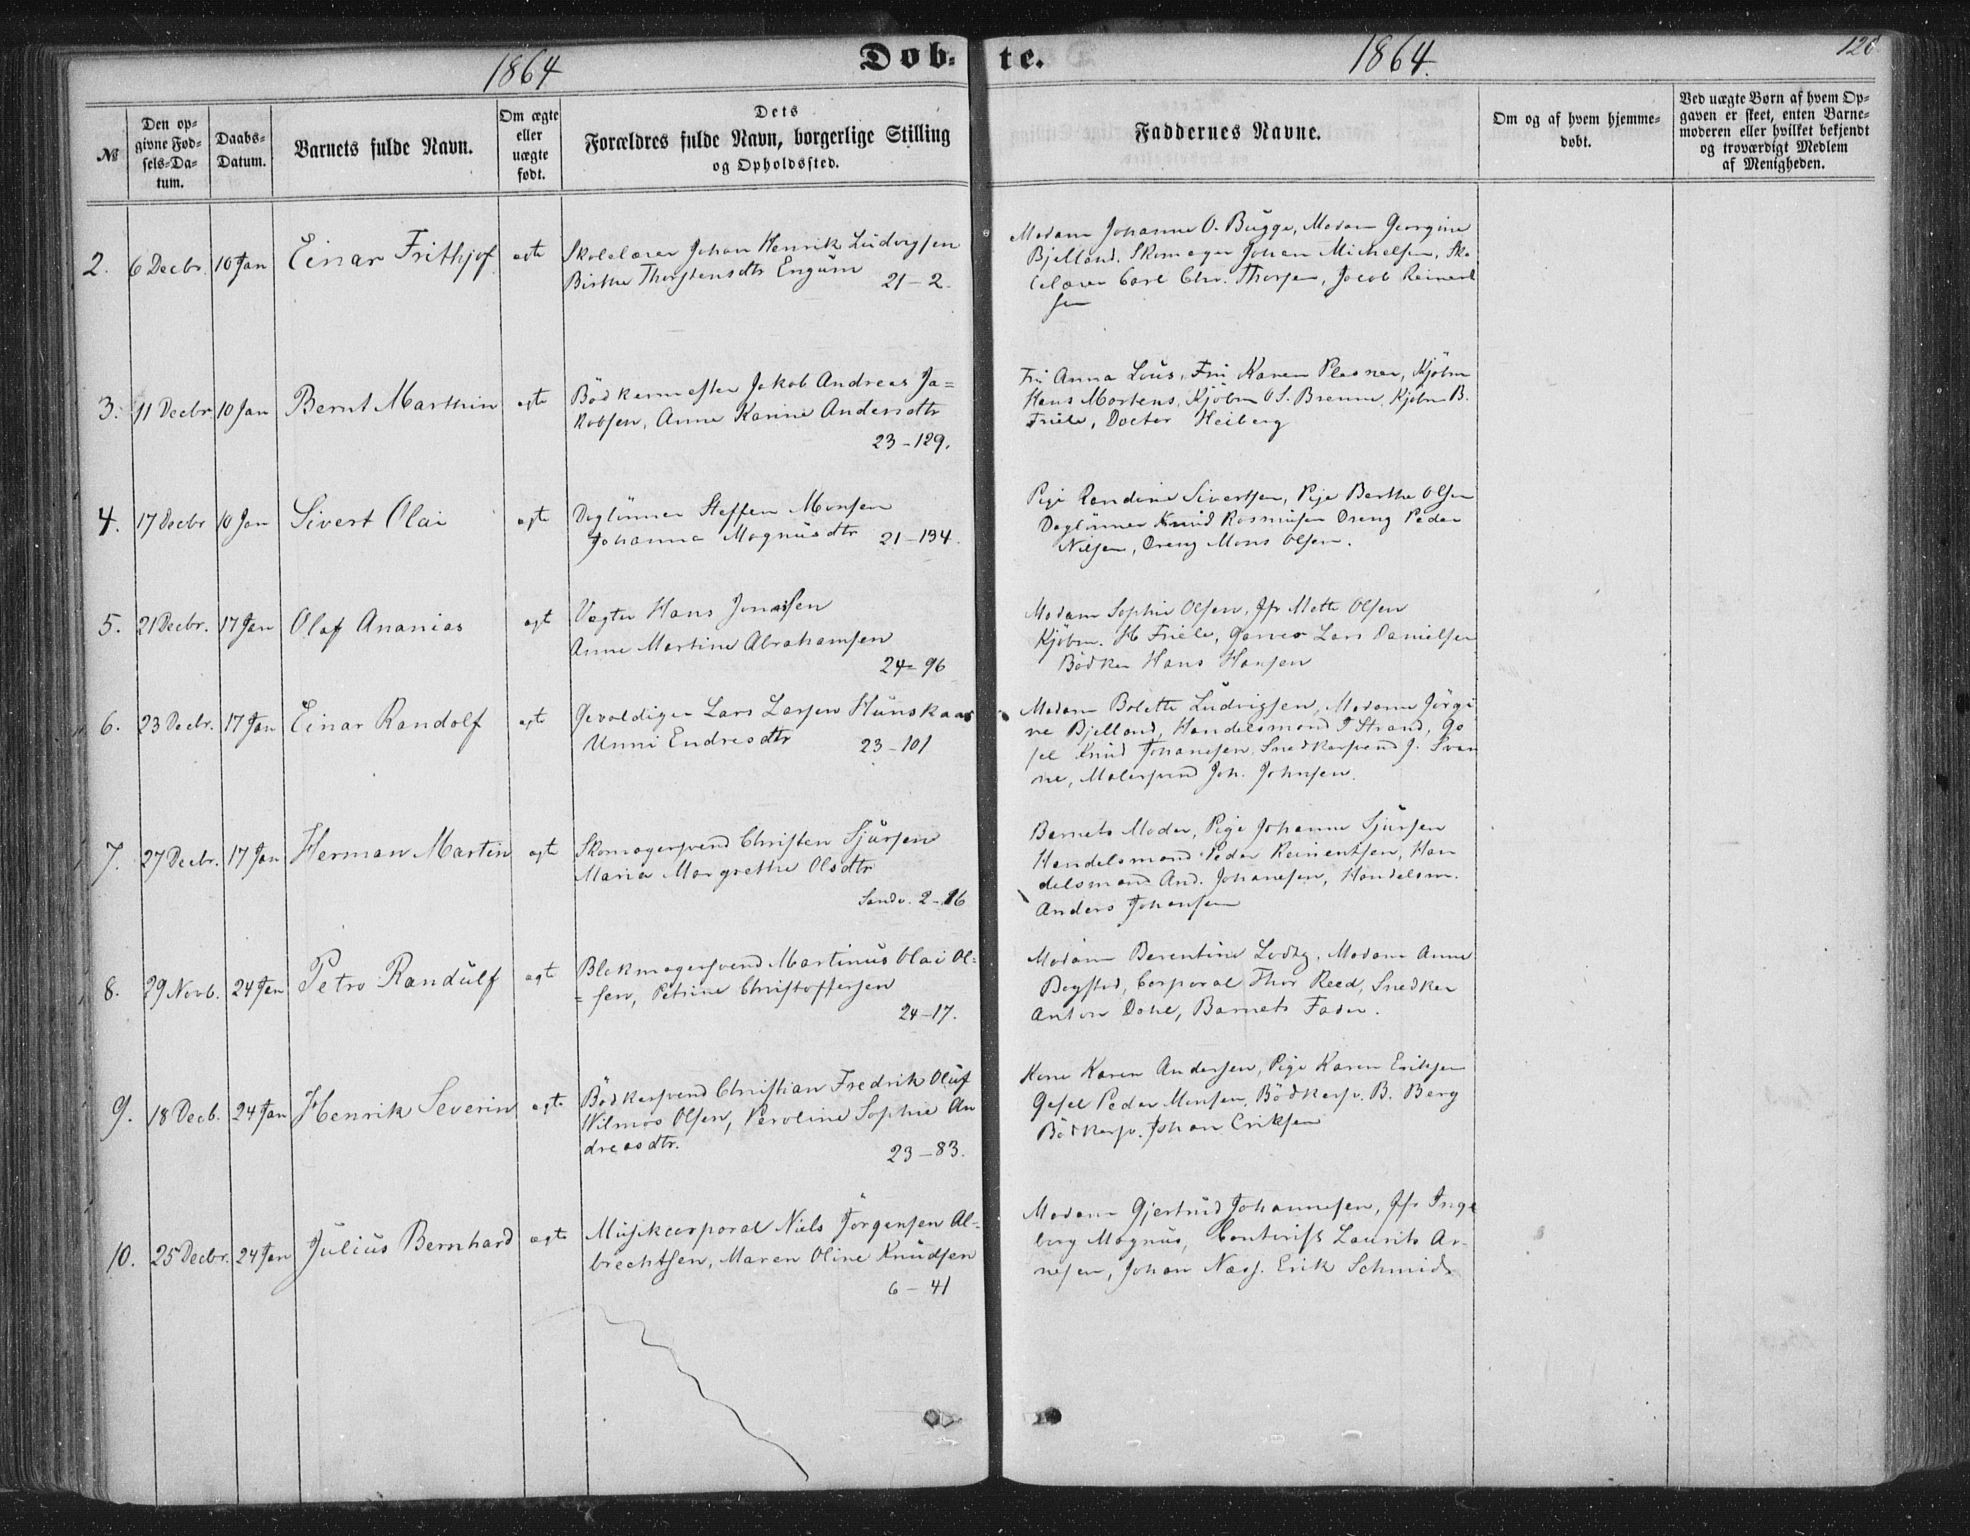 1864
Døb-
te.
1864.
№
Den op-
givne Fød-
sels-Da-
tum.
Daabs-
Datum.
Barnets fulde Navn.
Om ægte
eller
uægte
født.
Dets
Forældres fulde Navn, borgerlige Stilling
og Opholdssted.
Faddernes Navne.
Om og af hvem hjemme-
døbt.
Ved uægte Børn af hvem Op-
gaven er skeet, enten Barne-
moderen eller hvilket bekjendt
og troværdigt Medlem
af Menigheden.
2. 6 Decbr. 10 Jan Einar Frithjof egte
Skolelærer Johan Henrik Ludvigsen
Birthe Thorstensdtr Engum
21-2.
Madam Johanne O. Bugge, Madam Georgine
Bjelland, Skomager Johan Michelsen, Sko
lelærer Carl Chr. Thorsen, Jacob Reinert
sen
3. 11 Decbr 10 Jan Bernt Marthin egte
Bødkermester Jakob Andreas Ja=
kobsen, Anne Karine Andersdtr
23-129.
Frk Anna Lous, Frk Karen Plesner, Kjøbm
Hans Mortens, Kjøbm O S. Brenne, Kjøbm B.
Friele, Doctor Heiberg
4. 17 Decbr 10 Jan Sivert Olai egte
Daglønner Steffen Monsen
Johanna Magnusdtr 21-134.
Pige Randine Sivertsen, Pige Berthe Olsen
Daglønner Knud Rasmusen Dreng Peder
Nilsen, Dreng Mons Olsen.
5. 21 Decbr. 17 Jan Olaf Ananias egt
Vægter Hans Jonassen
Anne Martine Abrahamsen
24-96
Madam Sophie Olsen, Jfr Mette Olsen
Kjøbm. H Friele, Garver Lars Danielsen
Bødker Hans Hansen
6. 23 Decbr. 17 Jan Einar Randolf egte
Gevaldiger Lars Larsen Hunskaar
Unni Endresdtr 23-101
Madam Bolette Ludvigsen, Madam Jørgi
ne Bjelland, Handelsmand T Strand, Ge
sel Knud Johanesen, Snedkersvend J. Svan
ne, Malersvend Joh. Johnsen.
7. 27 Decbr. 17 Jan Herman Martin egte
Skomagersvend Christen Sjursen
Maria Margrethe Olsdtr
Sandv. 2-16
Barnets Moder, Pige Johanne Sjursen
Handelsmand Peder Reinertsen, Han
delsmand And. Johanesen, Handelsm.
Anders Johansen
8. 29 Novb. 24 Jan Petro Randulf egt
Blokmagersvend Martinus Olai Ol=
=sen, Petrine Christoffersen
24-17.
Madam Berentine Lodtz, Madam Anne
Bogstad, Corporal Thor Reed, Snedker
Anton Dahl, Barnets Fader.
9. 18 Decb. 24 Jan Henrik Severin egte
Bødkersvend Christian Fredrik Oluf
Wilmos Olsen, Peroline Sophie An
dreasdtr. 23-83.
Kone Karen Andersen, Pige Karen Eriksen
Gesel Peder Monsen, Bødkersv. B. Berg
Bødkersv. Johan Eriksen
10. 25 Decbr. 24 Jan Julius Bernhard egte
Musikcorporal Niels Jørgensen Al-
brechtsen, Maren Oline Knudsen
6-41
Madam Gjertrud Johannesen, Jfr Inge
borg Magnus, Contorist Laurits Ar-
nesen, Johan Næss. Erik Schmidt